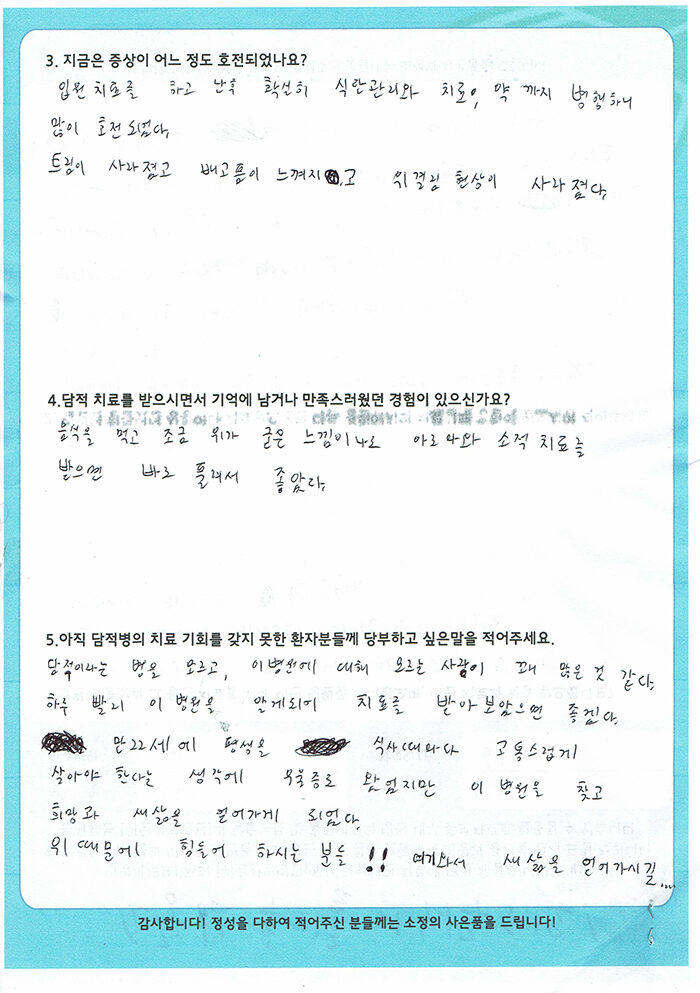 3. 지금은 증상이 어느 정도 호전되었나요?
입원 치료를 하고 난후 확실히 식단관리와 치료, 약 까지 병행하니
많이 호전 되었다.
트림이 사라졌고 배고픔이 느껴지고 위 결림 현상이 사라졌다.
4.담적 치료를 받으시면서 기억에 남거나 만족스러웠던 경험이 있으신가요?
음식을 먹고 조금 위가 굳은 느낌이 나도 아로마와 소적 치료를
받으면 바로 풀려서 좋았다.
5.아직 담적병의 치료 기회를 갖지 못한 환자분들께 당부하고 싶은말을 적어주세요.
담적이라는 병을 모르고, 이병원에 대해 모르는 사람이 꽤 많은 것 같다.
하루 빨리 이 병원을 알게되어 치료를 받아 보았으면 좋겠다.
만22세에 평생을 식사때마다 고통스럽게
살아야 한다는 생각에 우울증도 왔었지만 이 병원을 찾고
희망과 새삶을 얻어가게 되었다.
위 때문에 힘들어 하시는 분들!! 여기와서 새 삶을 얻어가시길...
감사합니다! 정성을 다하여 적어주신 분들께는 소정의 사은품을 드립니다!